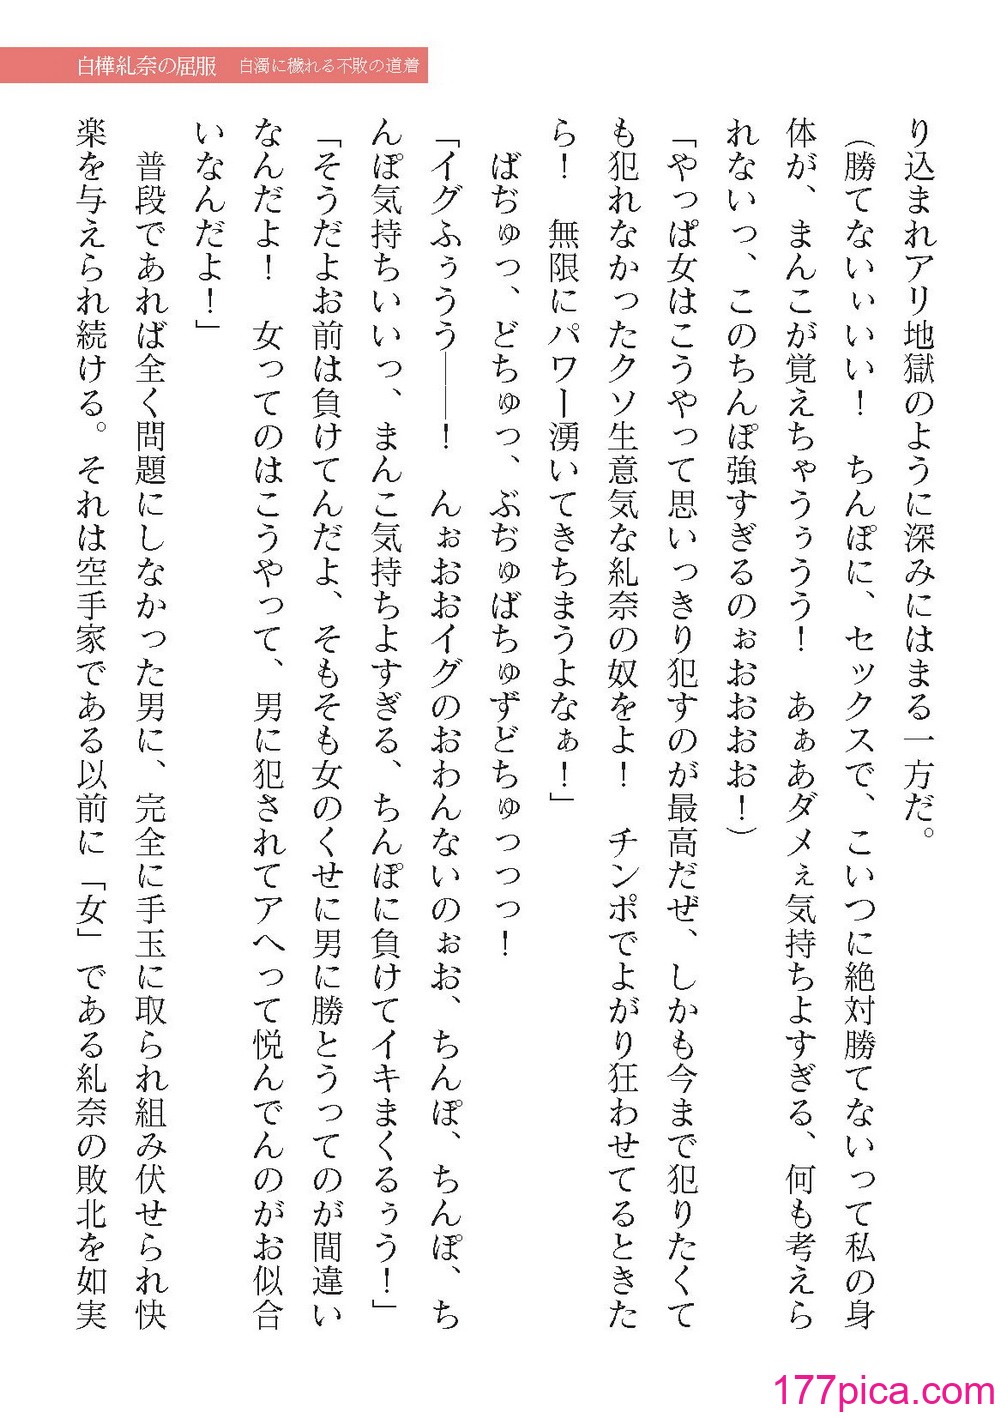 白樺糺奈の屈服　白濁に穢れる不敗の道着
り込まれアリ地獄のように深みにはまる一方だ。
（勝てないぃいい！　ちんぽに、セックスで、こいつに絶対勝てないって私の身
体が、まんこが覚えちゃうぅうう！　あぁあダメぇ気持ちよすぎる、何も考えら
れないっ、このちんぽ強すぎるのぉおおおお！）
「やっぱ女はこうやって思いっきり犯すのが最高だぜ、しかも今まで犯りたくて
も犯れなかったクソ生意気な糺奈の奴をよ！　チンポでよがり狂わせてるときた
ら！　無限にパワー湧いてきちまうよなぁ！」
ばぢゅっ、どちゅっ、ぶぢゅばちゅずどちゅっっっ！
「イグふぅうう――！　んぉおおイグのおわんないのぉお、ちんぽ、ちんぽ、ち
んぽ気持ちいいっ、まんこ気持ちよすぎる、ちんぽに負けてイキまくるぅう！」
「そうだよお前は負けてんだよ、そもそも女のくせに男に勝とうってのが間違い
なんだよ！　女ってのはこうやって、男に犯されてアヘって悦んでんのがお似合
いなんだよ！」
普段であれば全く問題にしなかった男に、完全に手玉に取られ組み伏せられ快
楽を与えられ続ける。それは空手家である以前に「女」である糺奈の敗北を如実
177pica.com